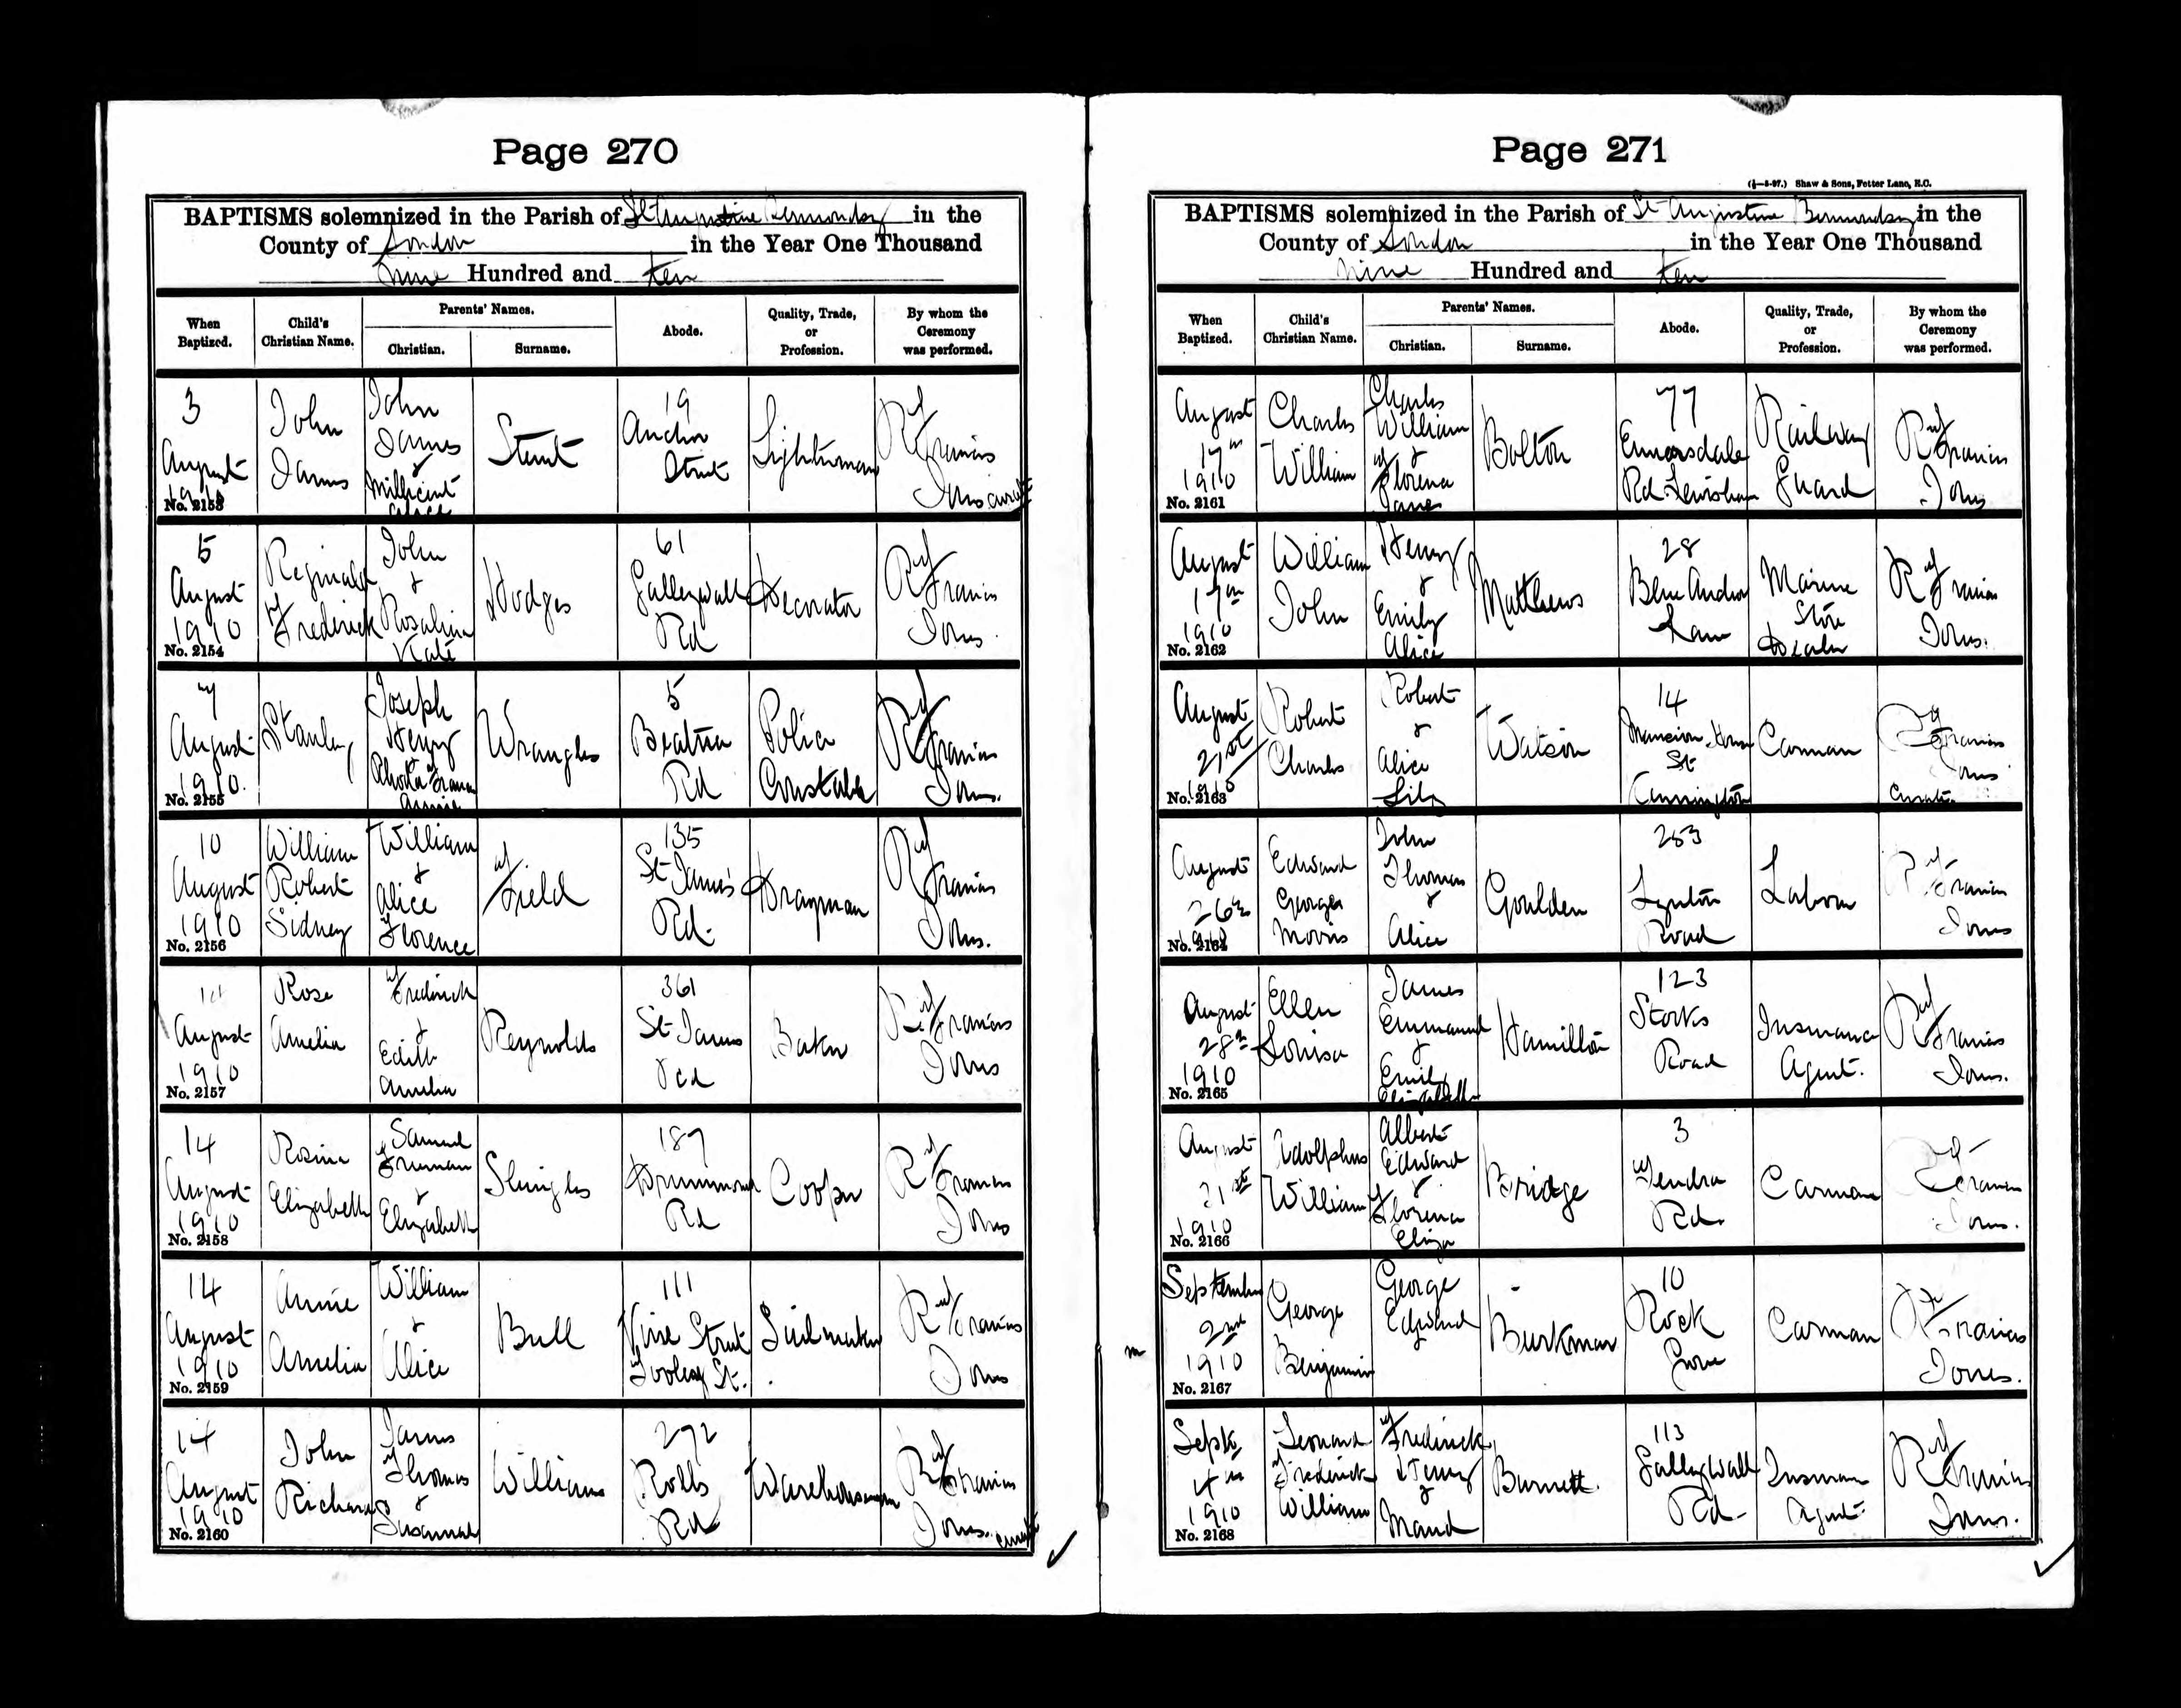 Page 270
BAPTISMS solemnized in the Parish of St Augustine Bermondsey in the
County of London in the Year One Thousand
Nine Hundred and ten
When Baptized.
Child's Christian Name.
Parents' Names.
Christian.
Surname.
Abode.
Quality, Trade, or Profession.
By whom the Ceremony was performed.
3
August
1910
No. 2153
John
James
John
James
&
Millicent
Alice
19
Anchor
Street
Lighterman
Rev
Francis
Jones curate
5
August
1910
No. 2154
Reginald
Frederick
John
&
Rosalina
Kate
Hodges
61
Galleywall
Rd
Decorator
Rev
Francis
Jones.
7
August
1910.
No. 2155
Stanley
Joseph
Henry
&
Annie
Wrangles
5
Beatrice
Rd
Police
Constable
Rev
Francis
Jones.
10
August
1910
No. 2156
William
Robert
Sidney
William
&
Alice
Florence
Field
135
St James's
Rd.
Drayman
Rev
Francis
Jones.
August
1910
No. 2157
Rose
Amelia
Frederick
&
Edith
Amelia
Reynolds
361
St James
Rd
Baker
Rev Francis
Jones
14
August
1910
No. 2158
Rosina
Elizabeth
Samuel
Freeman
&
Elizabeth
Shingles
187
Drummond
Rd
Cooper
Rev
Francis
Jones
14
August
1910
No. 2159
Annie
Amelia
William
&
Alice
Bull
111
Vine Street
Tooley St.
Sailmaker
Rev Francis
Jones
14
August
1910
No. 2160
John
Richard
James
Thomas
&
Susannah
Williams
272
Rolls
Rd
Warehouseman
Rev
Francis
Jones. curate
Page 271
(½—5-97.) Shaw & Sons, Fetter Lane, E.C.
BAPTISMS solemnized in the Parish of St Augustine Bermondsey in the
County of London in the Year One Thousand
Nine Hundred and ten
When Baptized.
Child's Christian Name.
Parents' Names.
Christian.
Surname.
Abode.
Quality, Trade, or Profession.
By whom the Ceremony was performed.
August
17th
1910
No. 2161
Charles
William
Charles
William
&
Florence
Jane
Bolton
77
Ennersdale
Rd Lewisham
Railway
Guard
Rev
Francis
Jones
August
17th
1910
No. 2162
William
John
Henry
&
Emily
Alice
Matthews
28
Blue Anchor
Lane
Marine
Store
Dealer
Rev
Francis
Jones.
August
21st
1910
No. 2163
Robert
Charles
Robert
&
Alice
Lily
Watson
14
Mansion House
St
Kennington
Carman
Rev
Francis
Jones
Curate.
August
26th
1910
No. 2164
Edward
George
Morris
John
Thomas
&
Alice
Goulden
253
Lynton
Road
Labourer
Rev
Francis
Jones
August
28th
1910
No. 2165
Ellen
Louisa
James
Emmanuel
&
Emily
Elizabeth
Hamilton
123
Storks
Road
Insurance
Agent.
Rev
Francis
Jones.
August
31st
1910
No. 2166
Adolphus
William
Albert
Edward
&
Florence
Eliza
Bridge
3
Yendra
Rd.
Carman
Rev
Francis
Jones.
September
2nd
1910
No. 2167
George
Benjamin
George
Edward
Burkmar
10
Rock
Grove
Carman
Rev
Francis
Jones.
Sept.
4th
1910
No. 2168
Leonard
Frederick
William
Frederick
Henry
&
Maud
Burnett.
113
Galleywall
Rd.
Insurance
Agent.
Rev
Francis
Jones.